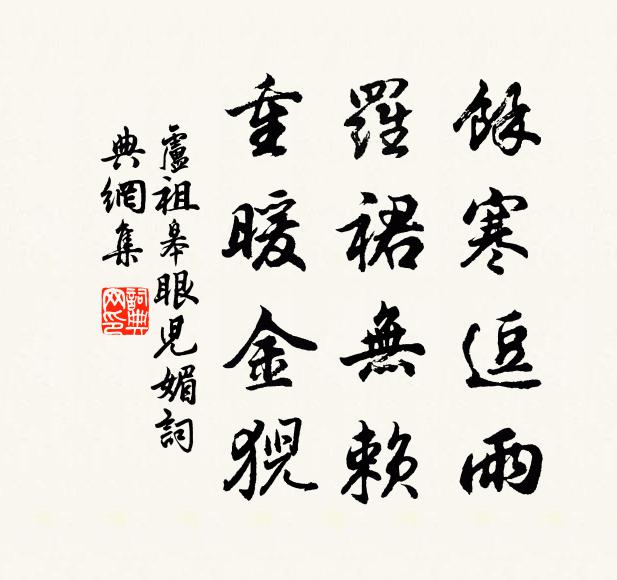 餘寒逗雨
羅裙無賴
重暖金猊
盧祖皋眼兒媚詞
典網集
詞典網印